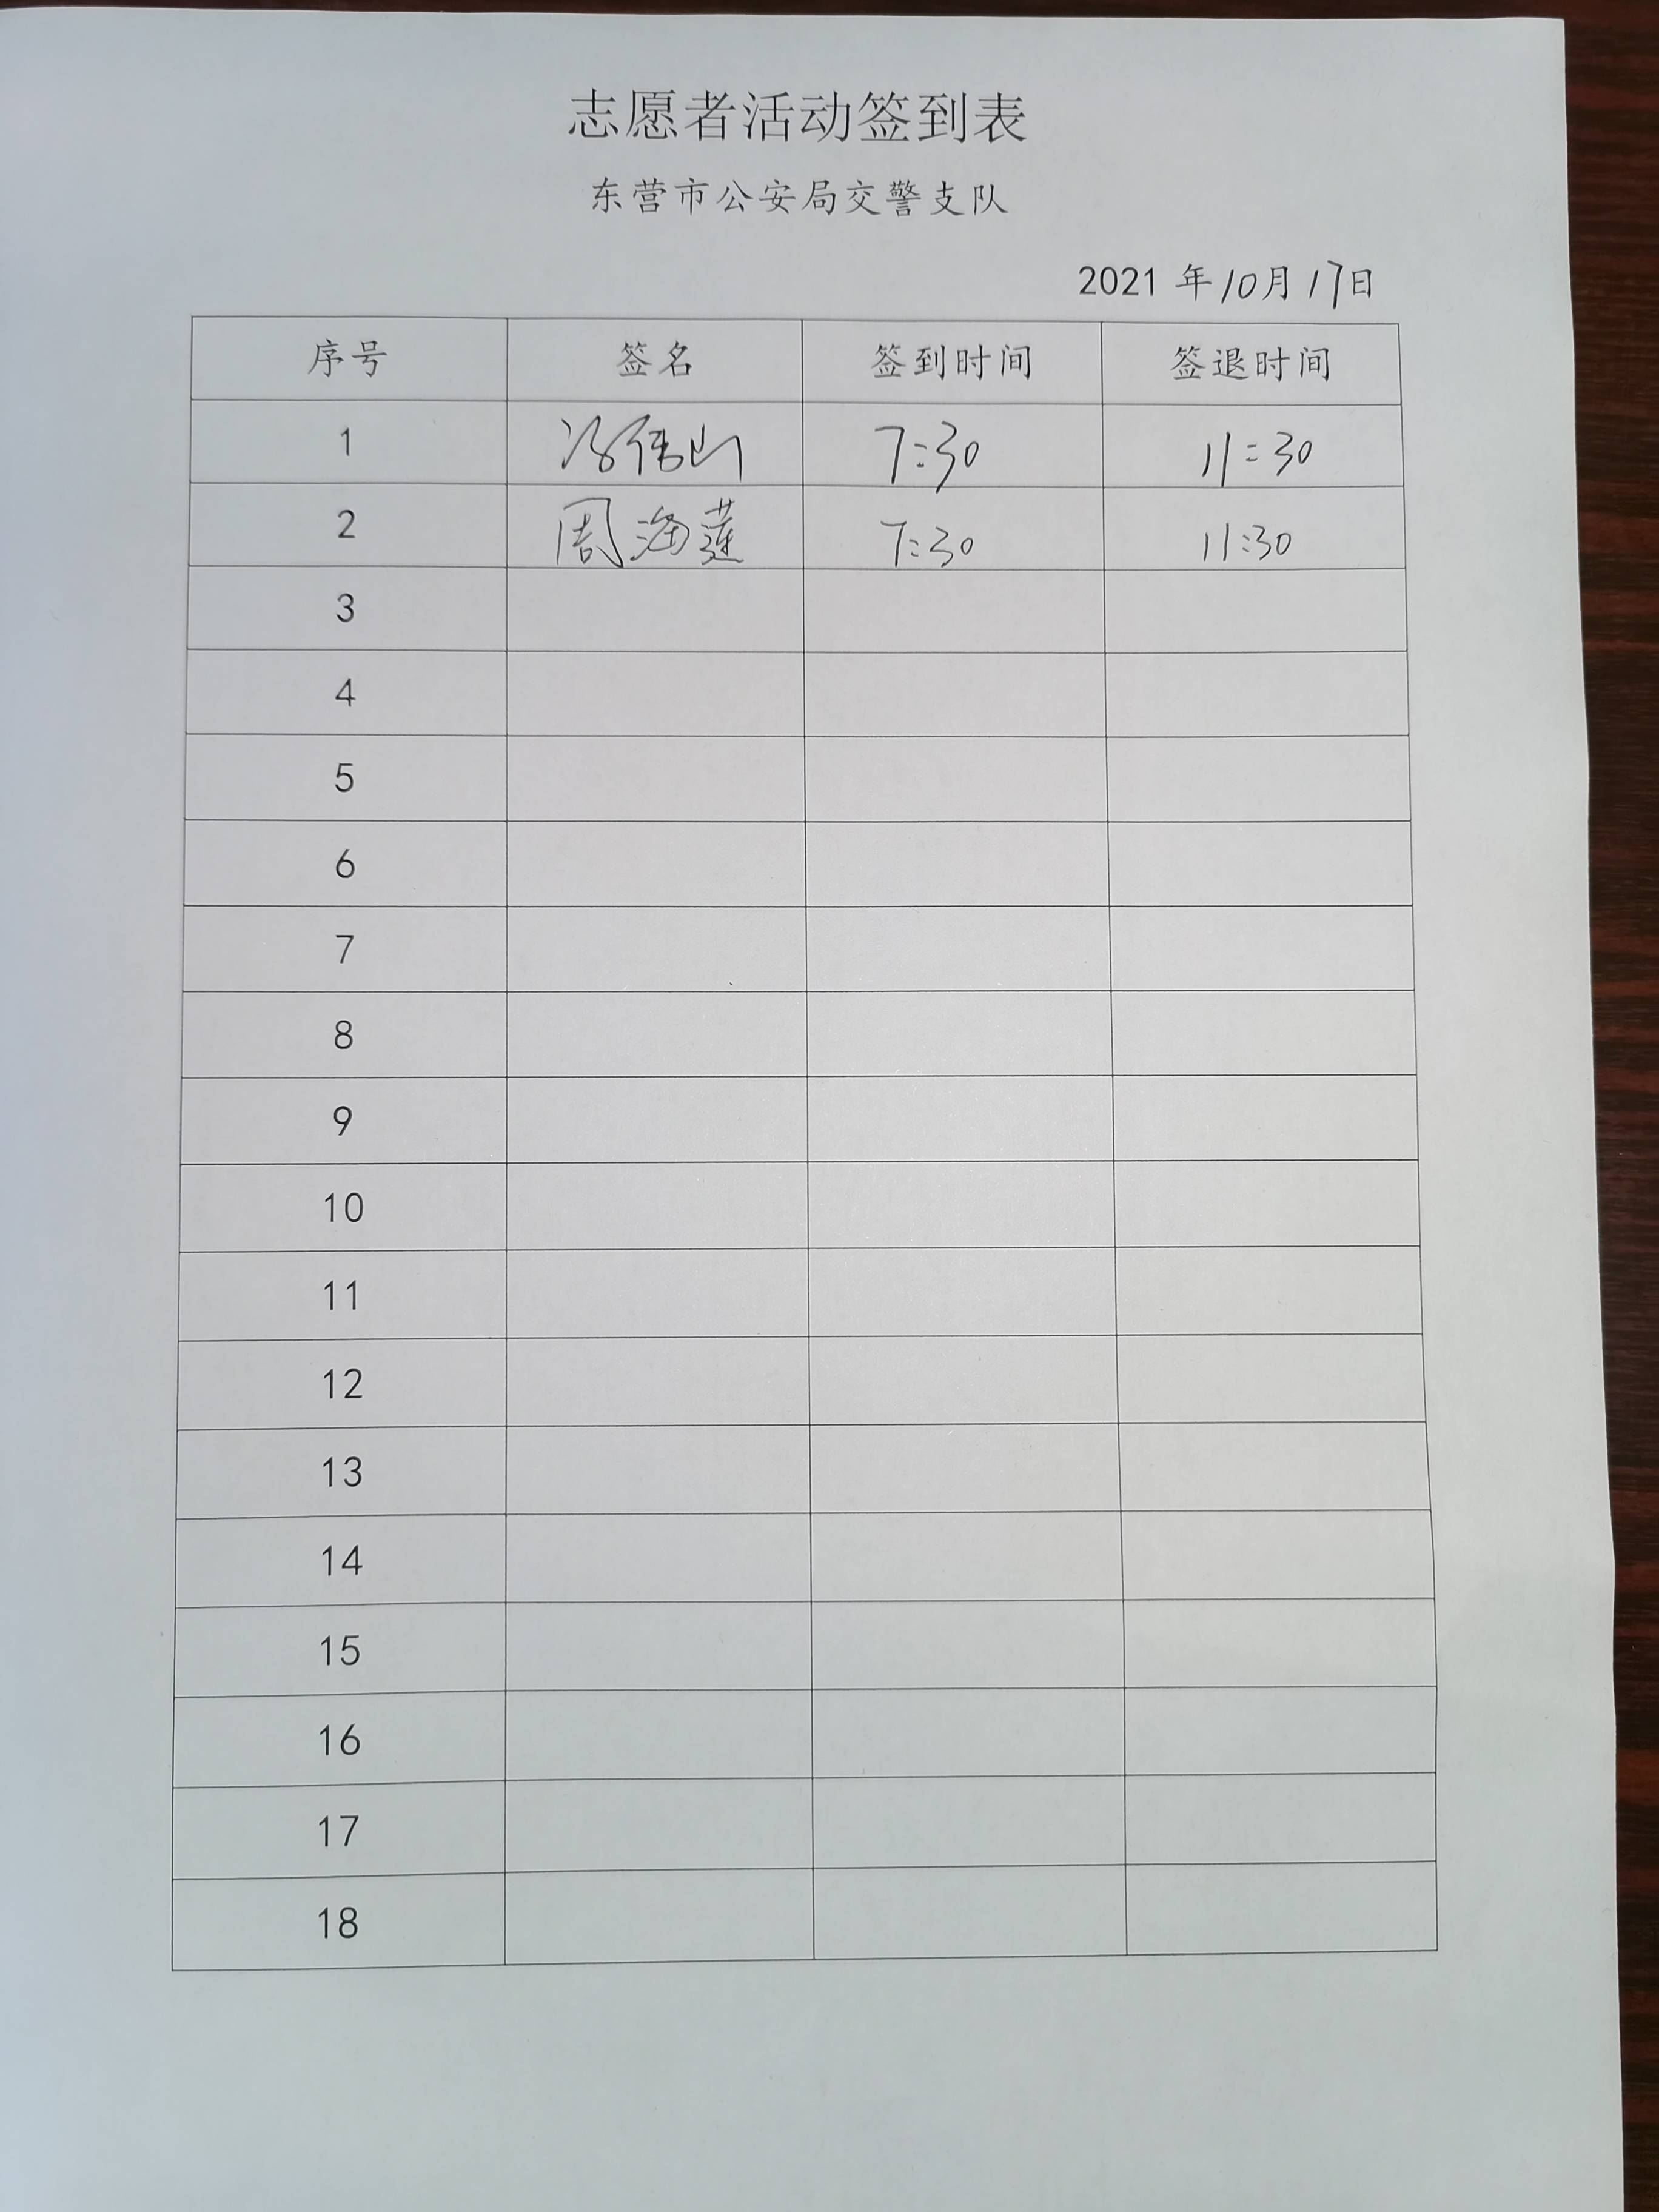 志愿者活动签到表
东营市公安局交警支队
2021 年 10月 17日
序号 签名 签到时间 签退时间
1 冯伟山 7:30 11:30
2 周海莲 7:30 11:30
3
4
5
6
7
8
9
10
11
12
13
14
15
16
17
18